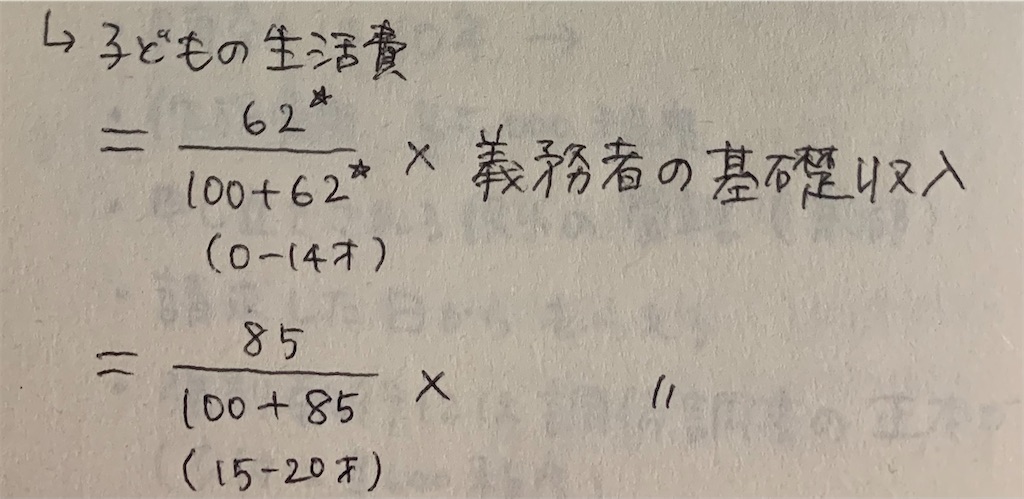 ↳ 子どもの生活費
= 62☆ / 100+62☆ × 義務者の基礎収入
(0-14才)
= 85 / 100+85 × 〃
(15-20才)